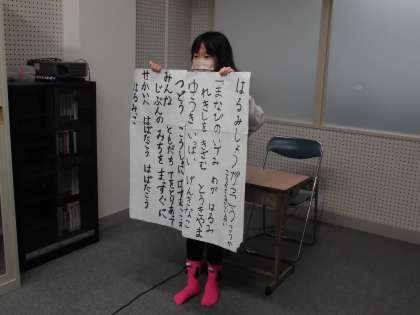 はるみしょうがっこう こうか
「まなびのいずみ わが はるみ
れきしを きざむ とうきやま
ゆうき いっぱい げんきなこ
つどう こうしゃに
みんな ともだち てをとりあって
じぶんの みちを まっすぐに
せかいへ はばたこう はばたこう
はるみこ